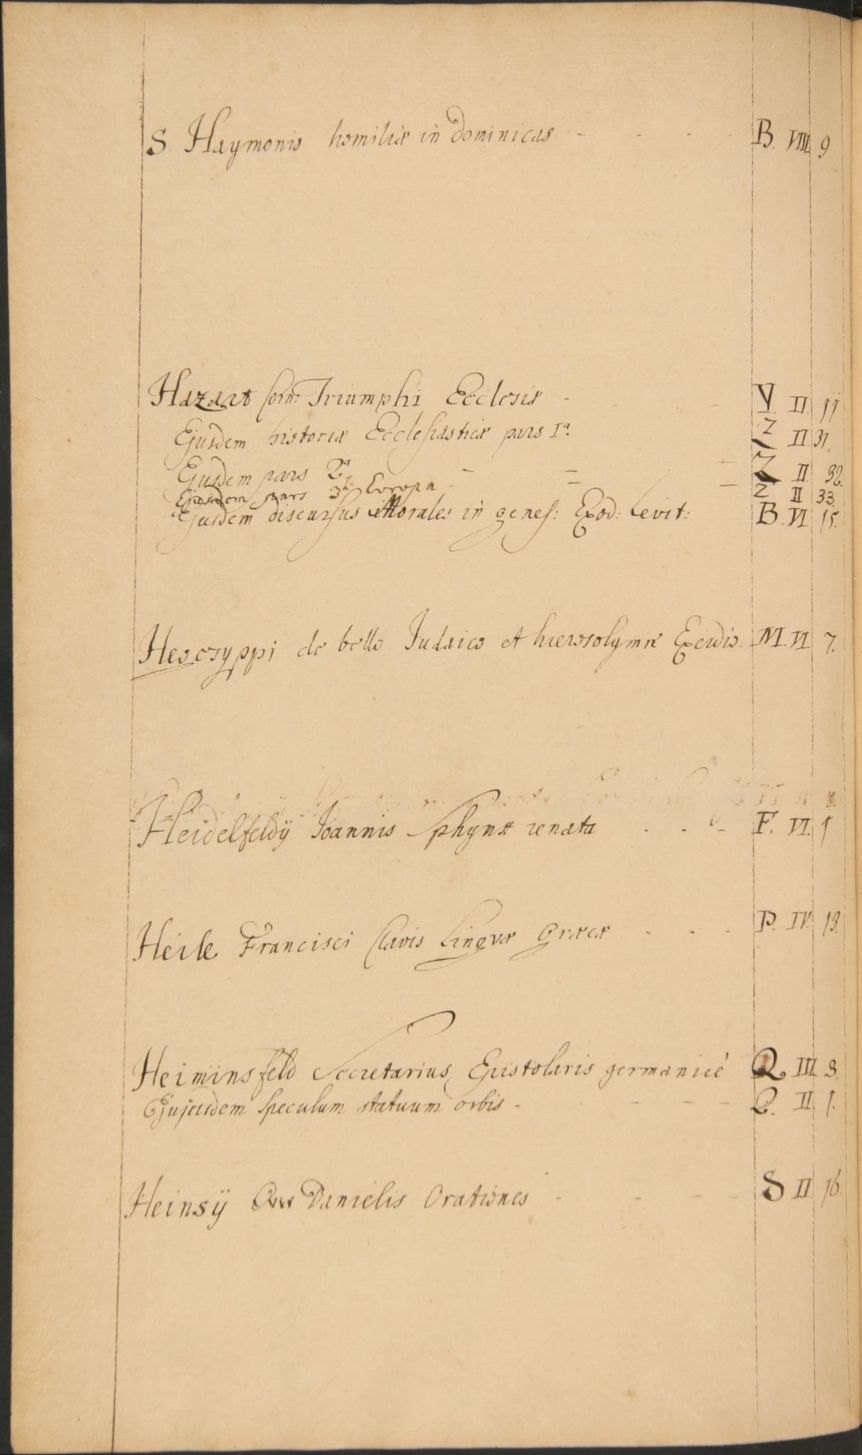 S. Haymonis homiliæ in Dominicas - - - - B. VIII. 9
Hazart Corn: Triumphi Ecclesiæ - - V II 11
Ejusdem historiæ Ecclesiasticæ pars 1ª. Z II 31.
Ejusdem pars 2ª - = - Z II 32.
Ejusdem pars 3ª Europa - - Z II 33
Ejusdem discursus Morales in genes: Exod: Levit: B. VI 15.
Hegesyppi de bello Judaico et hierosolymæ Excidio. M VI 7.
Heidelfeldÿ Joannis Sphynx renata . . - F. VI. 1
Heile Francisci Clavis Linguæ Græcæ - - - P. IV. 13.
Heiminsfeld Secretarius Epistolaris germanicè Q III 3.
Ejusdem speculum statuum orbis - - - - Q. II 1.
Heinsÿ Danielis Orationes - - - S II 16